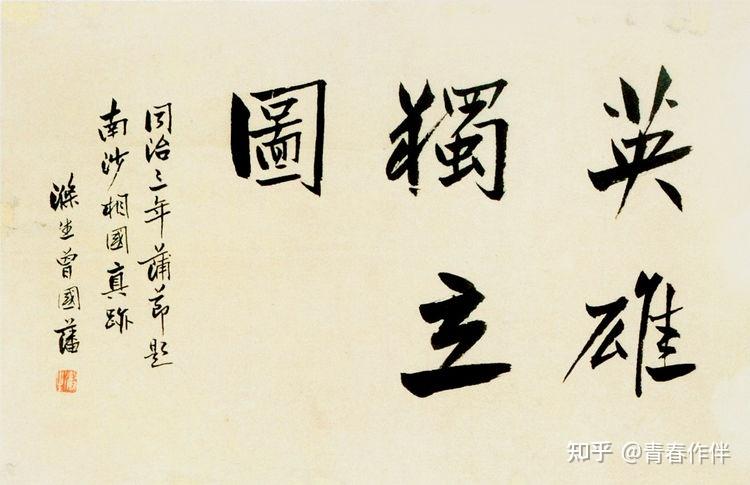 英雄
獨立
圖
同治三年蒲節題
南沙相國真跡
滌生曾國藩
知乎 @青春作伴